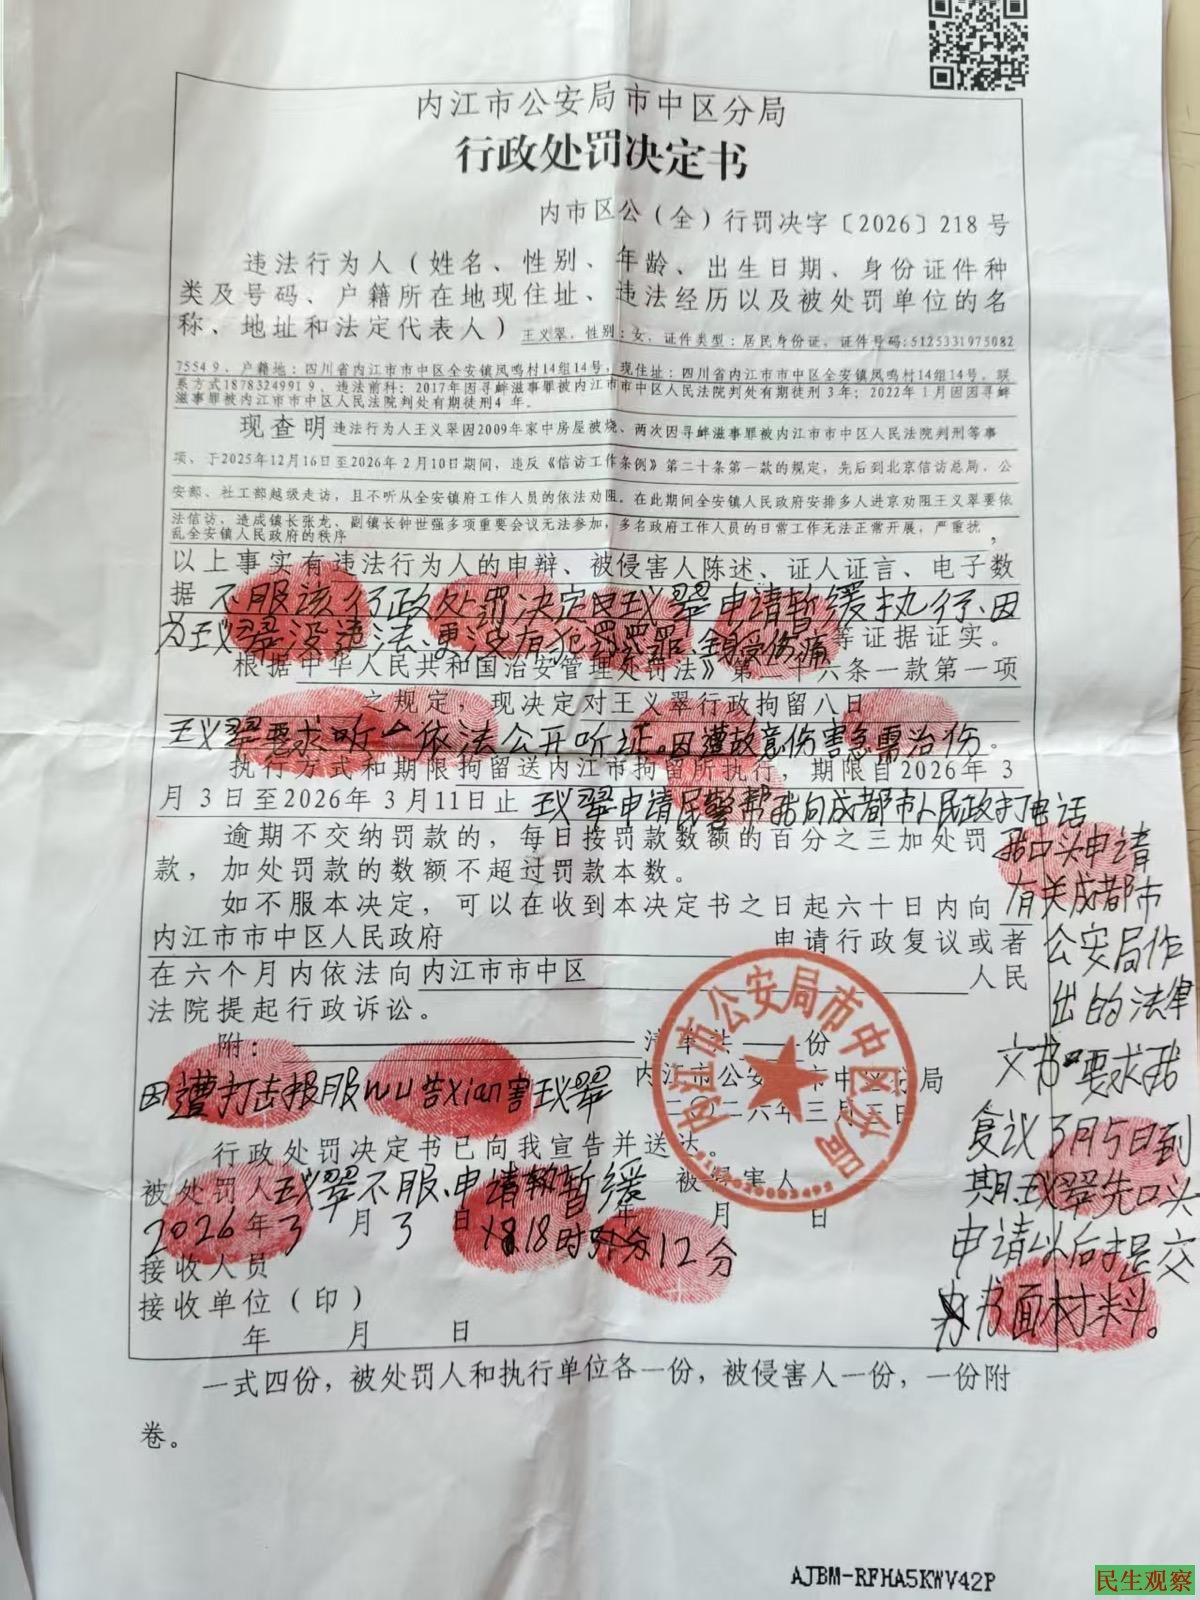 内江市公安局市中区分局
行政处罚决定书
内市区公（全）行罚决字〔2026〕218号
违法行为人（姓名、性别、年龄、出生日期、身份证件种
类及号码、户籍所在地现住址、违法经历以及被处罚单位的名
称、地址和法定代表人）王义翠，性别：女，证件类型：居民身份证，证件号码：5125331975082
7554 9，户籍地：四川省内江市市中区全安镇凤鸣村14组14号，现住址：四川省内江市市中区全安镇凤鸣村14组14号。联
系方式1878324991 9，违法前科：2017年因寻衅滋事罪被内江市市中区人民法院判处有期徒刑 3年；2022年 1月因因寻衅
滋事罪被内江市市中区人民法院判处有期徒刑4 年。
现查明违法行为人王义翠因2009年家中房屋被烧、两次因寻衅滋事罪被内江市市中区人民法院判刑等事
项，于2025年12月16日至2026年 2月10日期间，违反《信访工作条例》第二十条第一款的规定，先后到北京信访总局、公
安部、社工部越级走访，且不听从全安镇府工作人员的依法劝阻。在此期间全安镇人民政府安排多人进京劝阻王义翠要依
法信访，造成镇长张龙、副镇长钟世强多项重要会议无法参加，多名政府工作人员的日常工作无法正常开展，严重扰
乱全安镇人民政府的秩序，
以上事实有违法行为人的申辩、被侵害人陈述、证人证言、电子数
据 不服该行政处罚决定 王义翠申请暂缓执行、因
为王义翠没违法、更没有犯罪、全身受伤痛等证据证实。
根据中华人民共和国治安管理处罚法》第二十六条一款第一项
之规定，现决定对王义翠行政拘留八日
王义翠要求听 依法公开听证。因遭故意伤害急需治伤。
执行方式和期限拘留送内江市拘留所执行，期限自2026年 3
月 3日至2026年 3月11日止 王义翠申请民警帮我向成都市人民政打电话
逾期不交纳罚款的，每日按罚款数额的百分之三加处罚
款，加处罚款的数额不超过罚款本数。
如不服本决定，可以在收到本决定书之日起六十日内向
内江市市中区人民政府 申请行政复议或者
在六个月内依法向内江市市中区 人民
法院提起行政诉讼。
我口头申请
有关成都市
公安局作
出的法律
文书要求我
复议3月5日到
期、王义翠先口头
申请以后提交
书面材料。
附： 清单共 份
内江市公安局市中区分局
因遭打击报服wu告xian害王义翠
二〇二六年三月三日
内江市公安局市中区分局
行政处罚决定书已向我宣告并送达。
被处罚人王义翠不服、申请暂缓 被侵害人
2026年 3月 3日 18时 分12分 年 月 日
接收人员
接收单位（印）
年 月 日
一式四份，被处罚人和执行单位各一份，被侵害人一份，一份附
卷。
AJBM-RFHA5KWV42P
民生观察